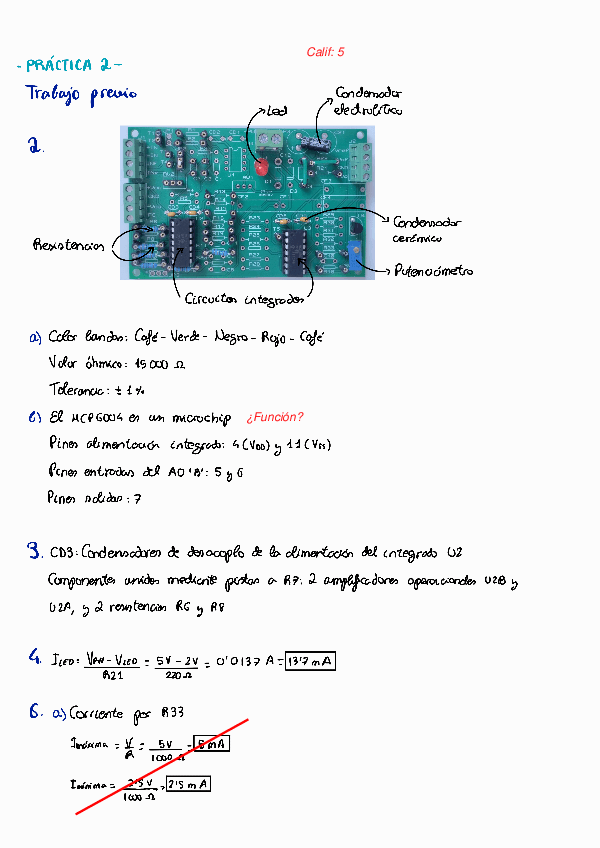 Calif: 5
- PRÁCTICA 2 -
Trabajo previo
Led
Condensador
electrolítico
2.
Condensador
cerámico
Resistencias
Potenciómetro
Circuitos integrados
a) Color bandas: Café - Verde - Negro - Rojo - Café
Valor óhmico: 15000 Ω
Tolerancia: ± 1%
b) El MCP6004 es un microchip ¿Función?
Pines alimentación integrado: 4 (VDD) y 11 (VSS)
Pines entradas del AO 'B': 5 y 6
Pines salidas: 7
3. CD3: Condensadores de desacoplo de la alimentación del integrado U2
Componentes unidos mediante pistas a R7: 2 amplificadores operacionales U2B y
U2A, y 2 resistencias R6 y R8
4. ILED: = 5V - 2V / 220 Ω = 0'0137 A = 13'7 mA
R21
6. a) Corriente por R33
Imáxima = V / R = 5V / 1000 Ω = 5 mA
= 2'5 V / 1000 Ω = 2'5 mA